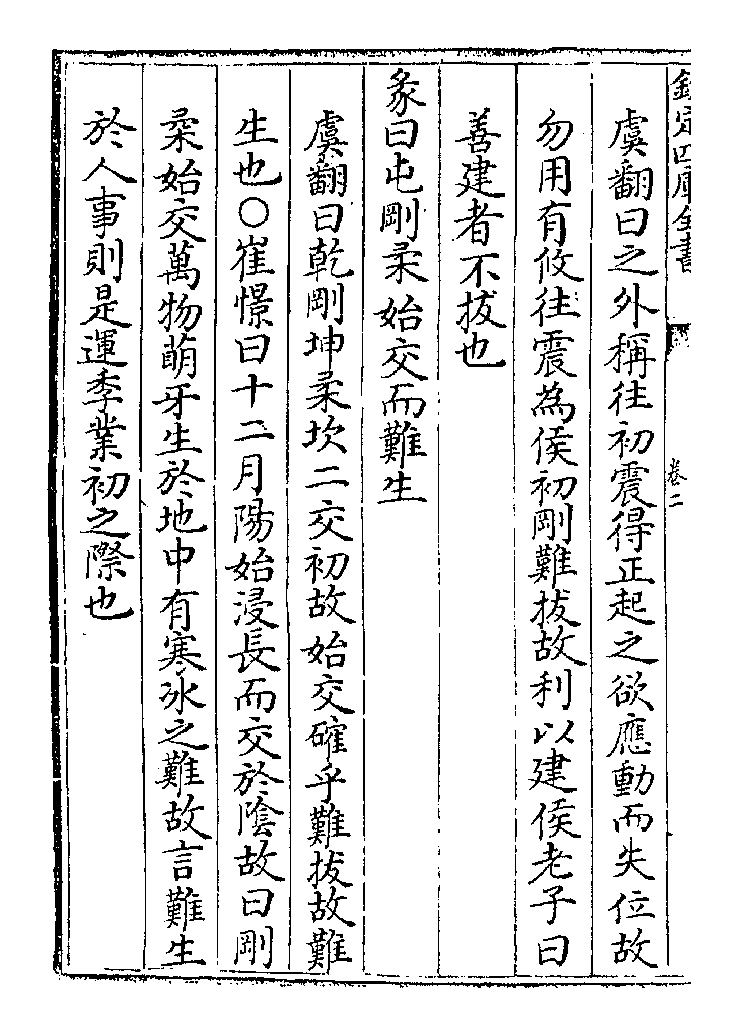 欽定四庫全書
卷二
虞翻曰之外稱往初震得正起之欲應動而失位故
勿用有攸往震為侯初剛難拔故利以建侯老子曰
善建者不拔也
彖曰屯剛柔始交而難生
虞翻曰乾剛坤柔坎二交初故始交確乎難拔故難
生也○崔憬曰十二月陽始浸長而交於陰故曰剛
柔始交萬物萌牙生於地中有寒冰之難故言難生
於人事則是運季業初之際也